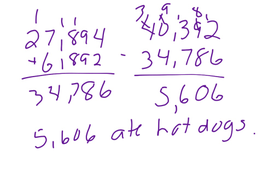 1 1 1 3 9 1 8 1
27,894 40,392
+6,892 - 34,786
34,786 5,606
5,606 ate hot dogs.